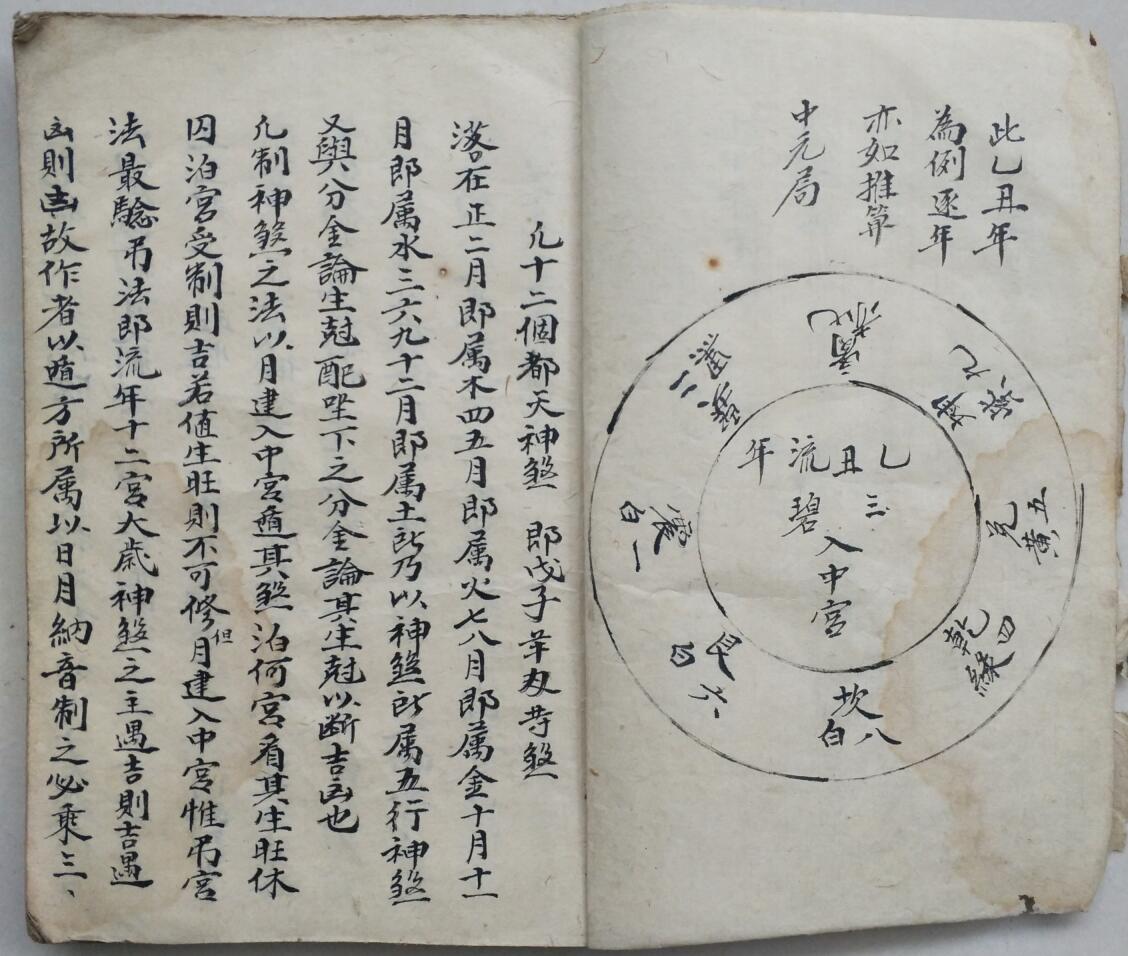 此乙丑年
為例逐年
亦如推算
中元局
乙丑流年
三碧入中宮
離
九紫
五黃
兌
四綠
乾
坎
八白
艮
六白
震
一白
巽
二黑
凢十二個都天神煞 即戊子
煞在正二月即属木四五月即属火七八月即属金十月十一
月即属水三六九十二月即属土此乃以神煞所属五行神煞
又與分金論生尅配坐下之分金論其生尅以断吉凶也
凢制神煞之法以月建入中宮遁其煞泊何宮看其生旺休
囚泊宮受制則吉若值生旺則不可修但月建入中宮惟弔宮
法最驗弔法即流年十二宮大歲神煞之主遇吉則吉遇
凶則凶故作者以遁方所属以日月納音制之必乘三、